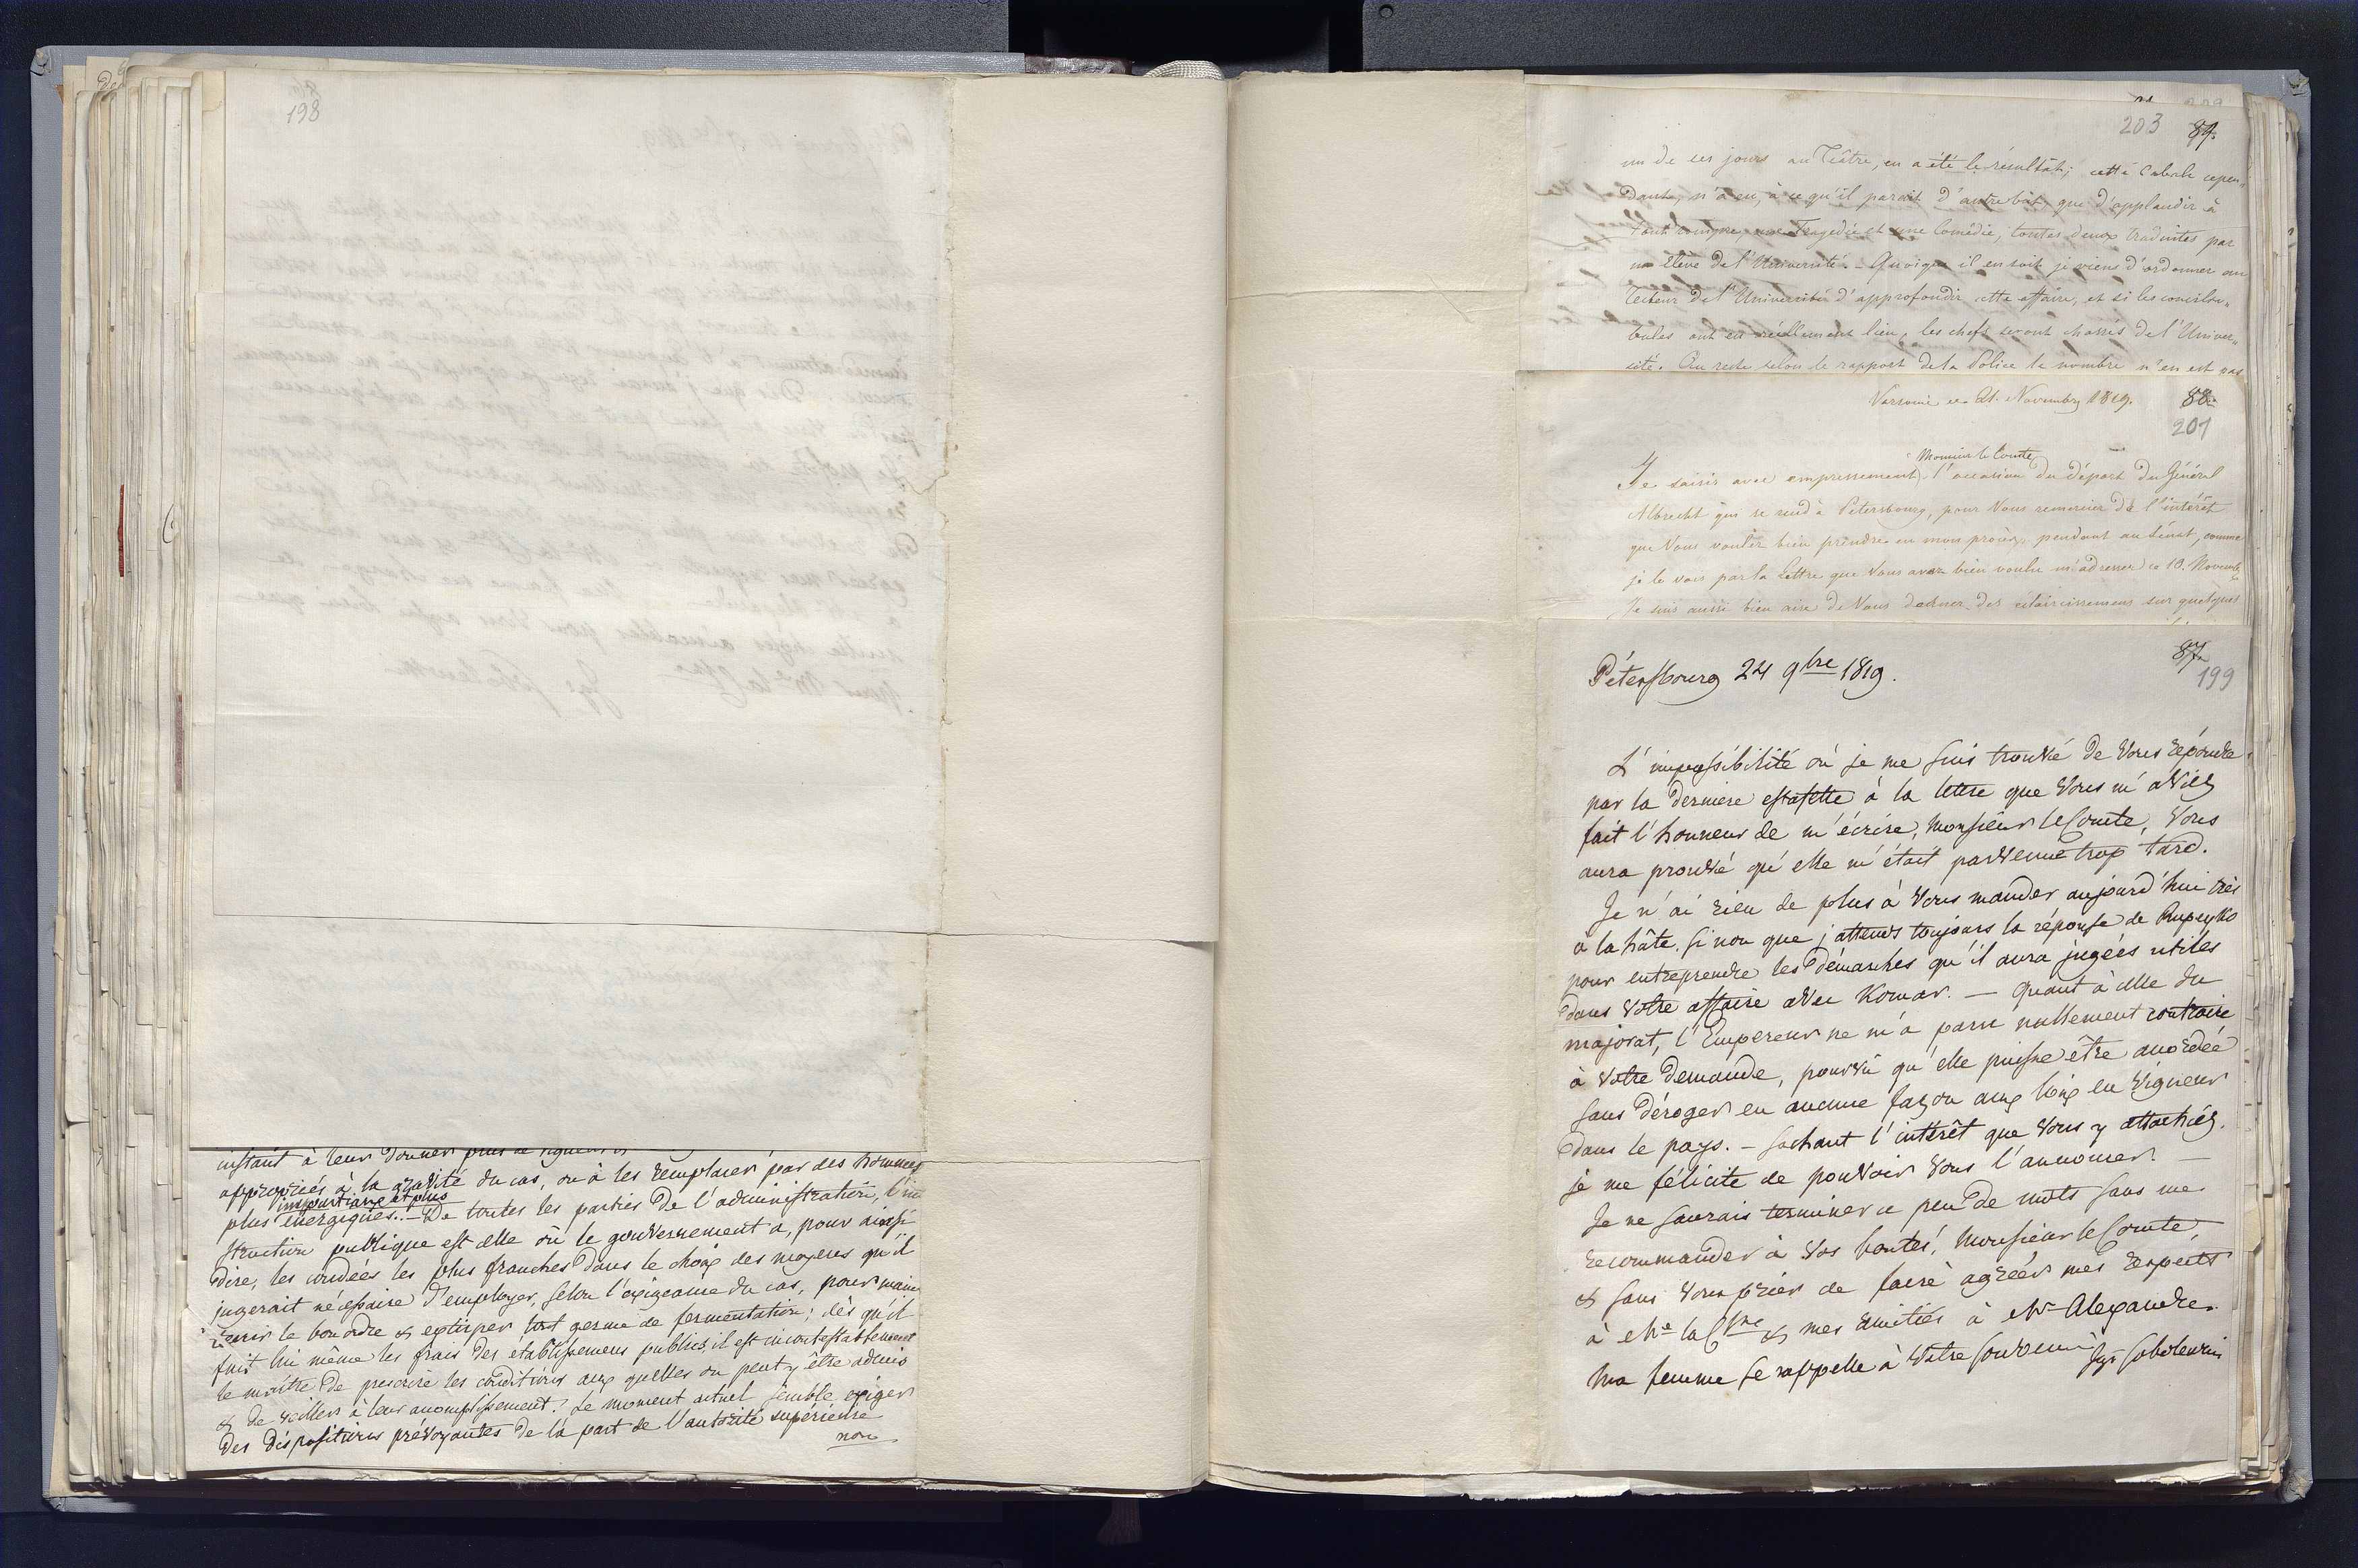 198
instant à leur donner plus de
appropriés à la gravité du cas, ou à les remplacer par des hommes
impartiaux et plus
plus énergiques. — De toutes les parties de l'administration, l'in
struction publique est celle où le gouvernement a, pour ainsi
dire, les coudées les plus franches dans le choix des moyens qu'il
jugerait nécessaire d'employer, selon l'exigeance du cas, pour main
tenir le bon ordre & extirper tout germe de fermentation; dès qu'il
fait lui même les frais des établissemens publics, il est incontestablement
le maître de prescrire les conditions aux quelles on peut y être admis
& de veiller à leur accomplissement. Le moment actuel semble exiger
des dispositions prévoyantes de la part de l'autorité supérieure
non
203 89.
un de ces jours au Téâtre, en a été le résultat; cette Cabale cepen„
dant, n'a eu, à ce qu'il parait d'autre but, que d'applaudir à
tout rompre, une Tragedie et une Comédie, toutes deux traduites par
un Elève de l'Université. — Quoique il en soit je viens d'ordonner au
Recteur de l'Université d'approfondir cette affaire, et si les concilia„
bules ont eu réellement lieu, les chefs seront chassés de l'Univer„
sité. Au reste selon le rapport de la Police le nombre n'en est pas
Varsovie ce 21. Novembre 1819. 88.
201
Monsieur le Comte
Je saisis avec empressement l'occasion du départ du Général
Albrecht qui se rend à Petersbourg, pour Vous remercier de l'intérêt
que Vous voulez bien prendre en mon procès pendant au Sénat, comme
je le vois par la Lettre que Vous avez bien voulu m'adresser ce 10. Novembre
Je suis aussi bien aise de Vous donner des éclaircissemens sur quelques
87.
199
Pétersbourg 24 9bre 1819.
L'impossibilité où je me suis trouvé de Vous répondre
par la derniere estafette à la lettre que Vous m'aviez
fait l'honneur de m'écrire, Monsieur le Comte, Vous
aura prouvé qu'elle m'était parvenue trop tard.
Je n'ai rien de plus à Vous mander aujourd'hui très
à la hâte, si non que j'attends toujours la réponse de Rupeyko
pour entreprendre les démarches qu'il aura jugées utiles
dans Votre affaire avec Komar. — Quant à celle du
majorat, l'Empereur ne m'a paru nullement contraire
à Votre demande, pourvû qu'elle puisse être accordée
sans déroger en aucune façon aux loix en vigueur
dans le pays. — Sachant l'intérêt que Vous y attachés,
je me félicite de pouvoir Vous l'annoncer. —
Je ne saurais terminer ce peu de mots sans me
recommander à Vos bontés, Monsieur le Comte,
& sans Vous prier de faire agréer mes respects
à Me la Csse & mes amitiés à Mr Alexandre.
Ma femme se rappelle à Votre souvenir Ige Sobolewski